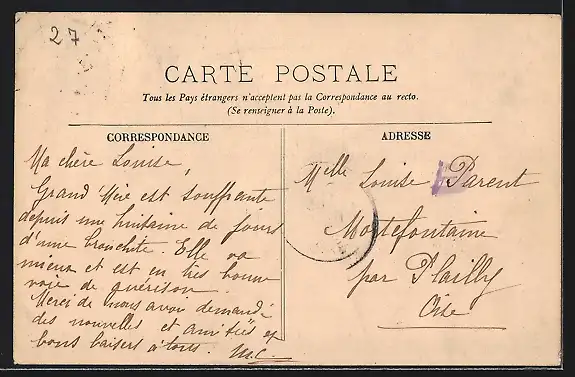 27
CARTE POSTALE
Tous les Pays étrangers n'acceptent pas la Correspondance au recto.
(Se renseigner à la Poste).
CORRESPONDANCE
Ma chère Louise,
Grand'Mère est souffrante
depuis une huitaine de jours
d'une bronchite. Elle va
mieux et est en très bonne
voie de guérison.
Merci de nous avoir demandé
des nouvelles et amitiés et
bons baisers à tous.
ADRESSE
Melle Louise Parent
Mortefontaine
par Plailly
Oise